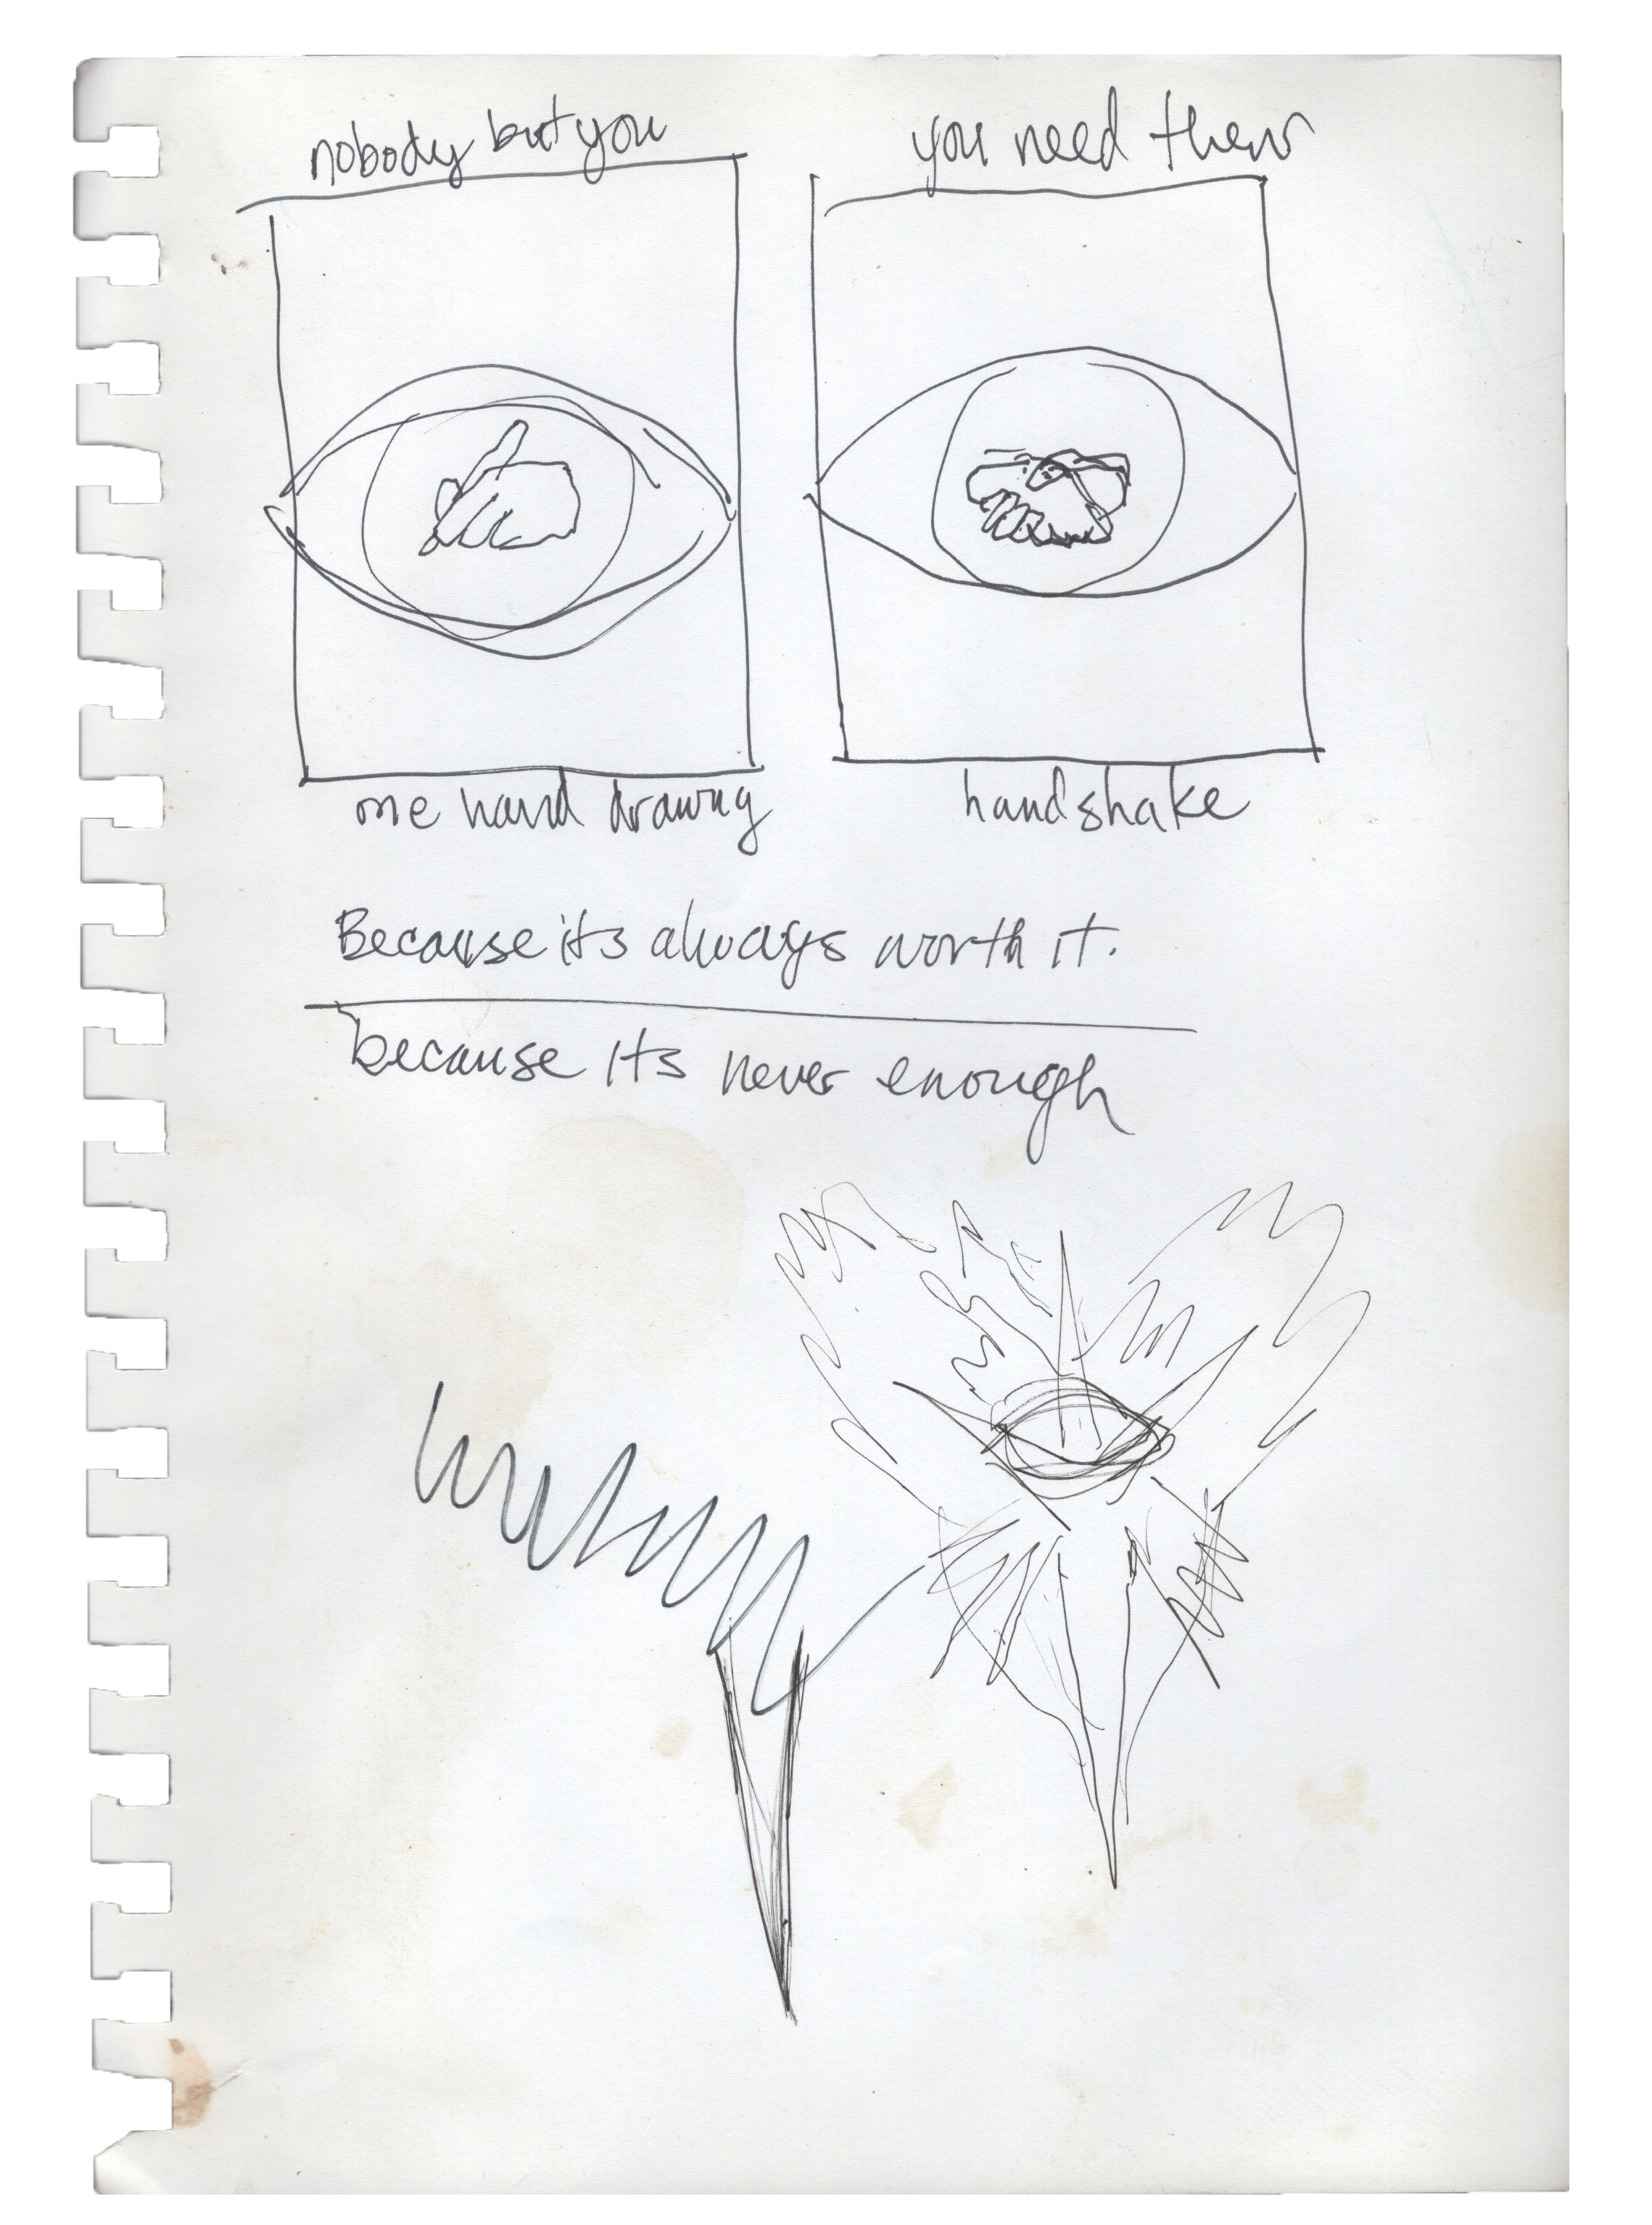 nobody but you
you need them
one hand drawing
handshake
Because its always worth it.
because its never enough